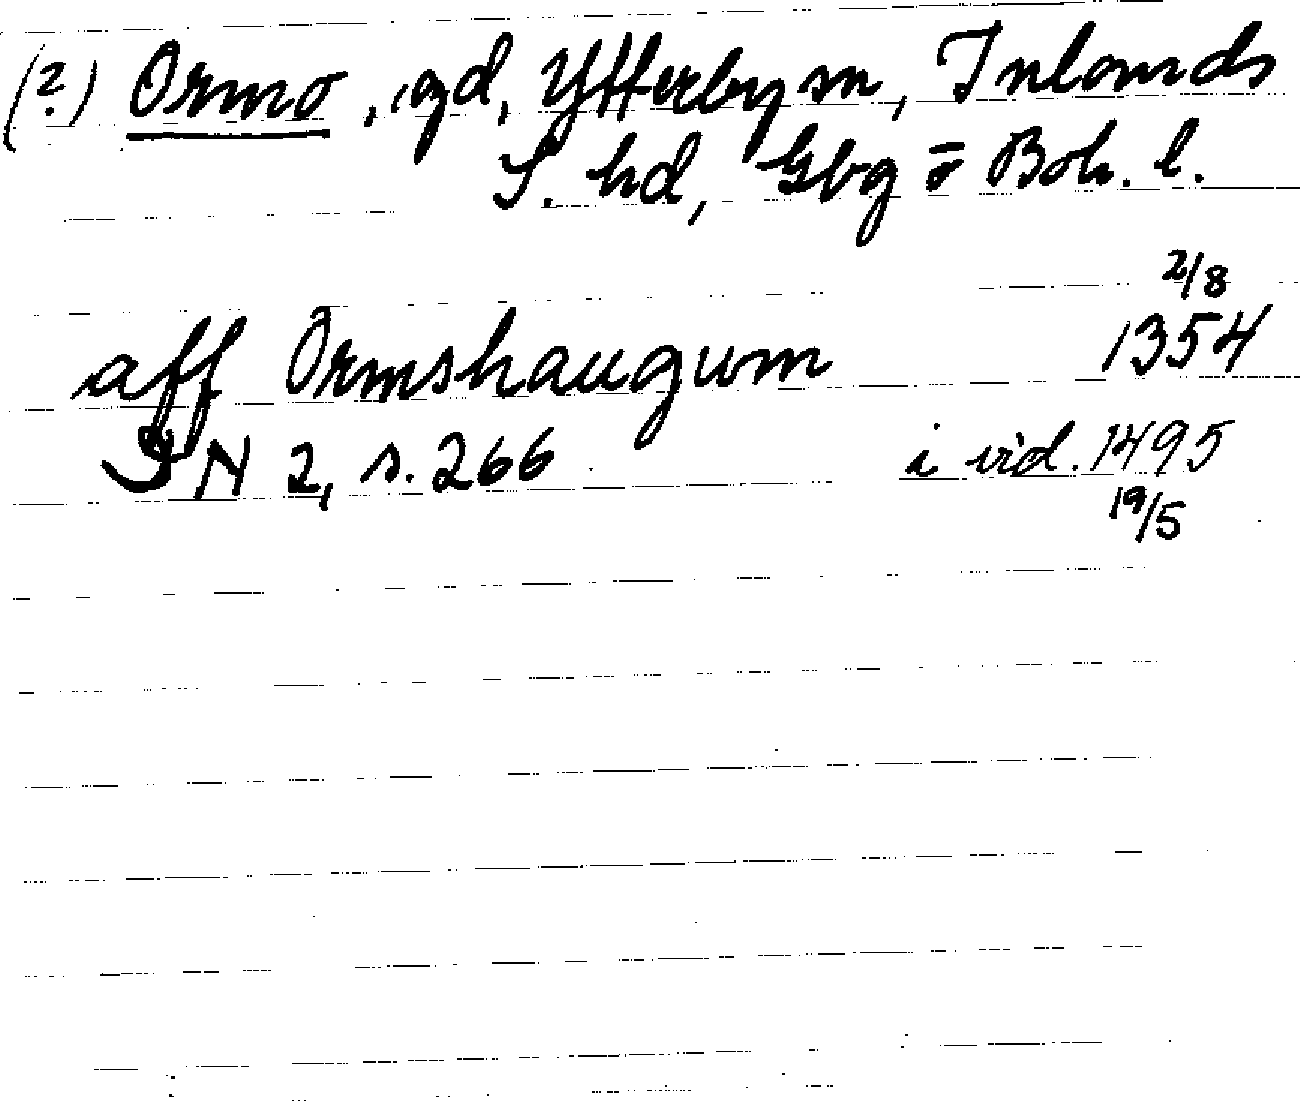 (?) Ormo, gd, Ytterby sn, Inlands
S. hd, Gbg o Boh. l.
2/8
aff Ormshaugum 1354
DN 2, s. 266 i vid. 1495
19/5